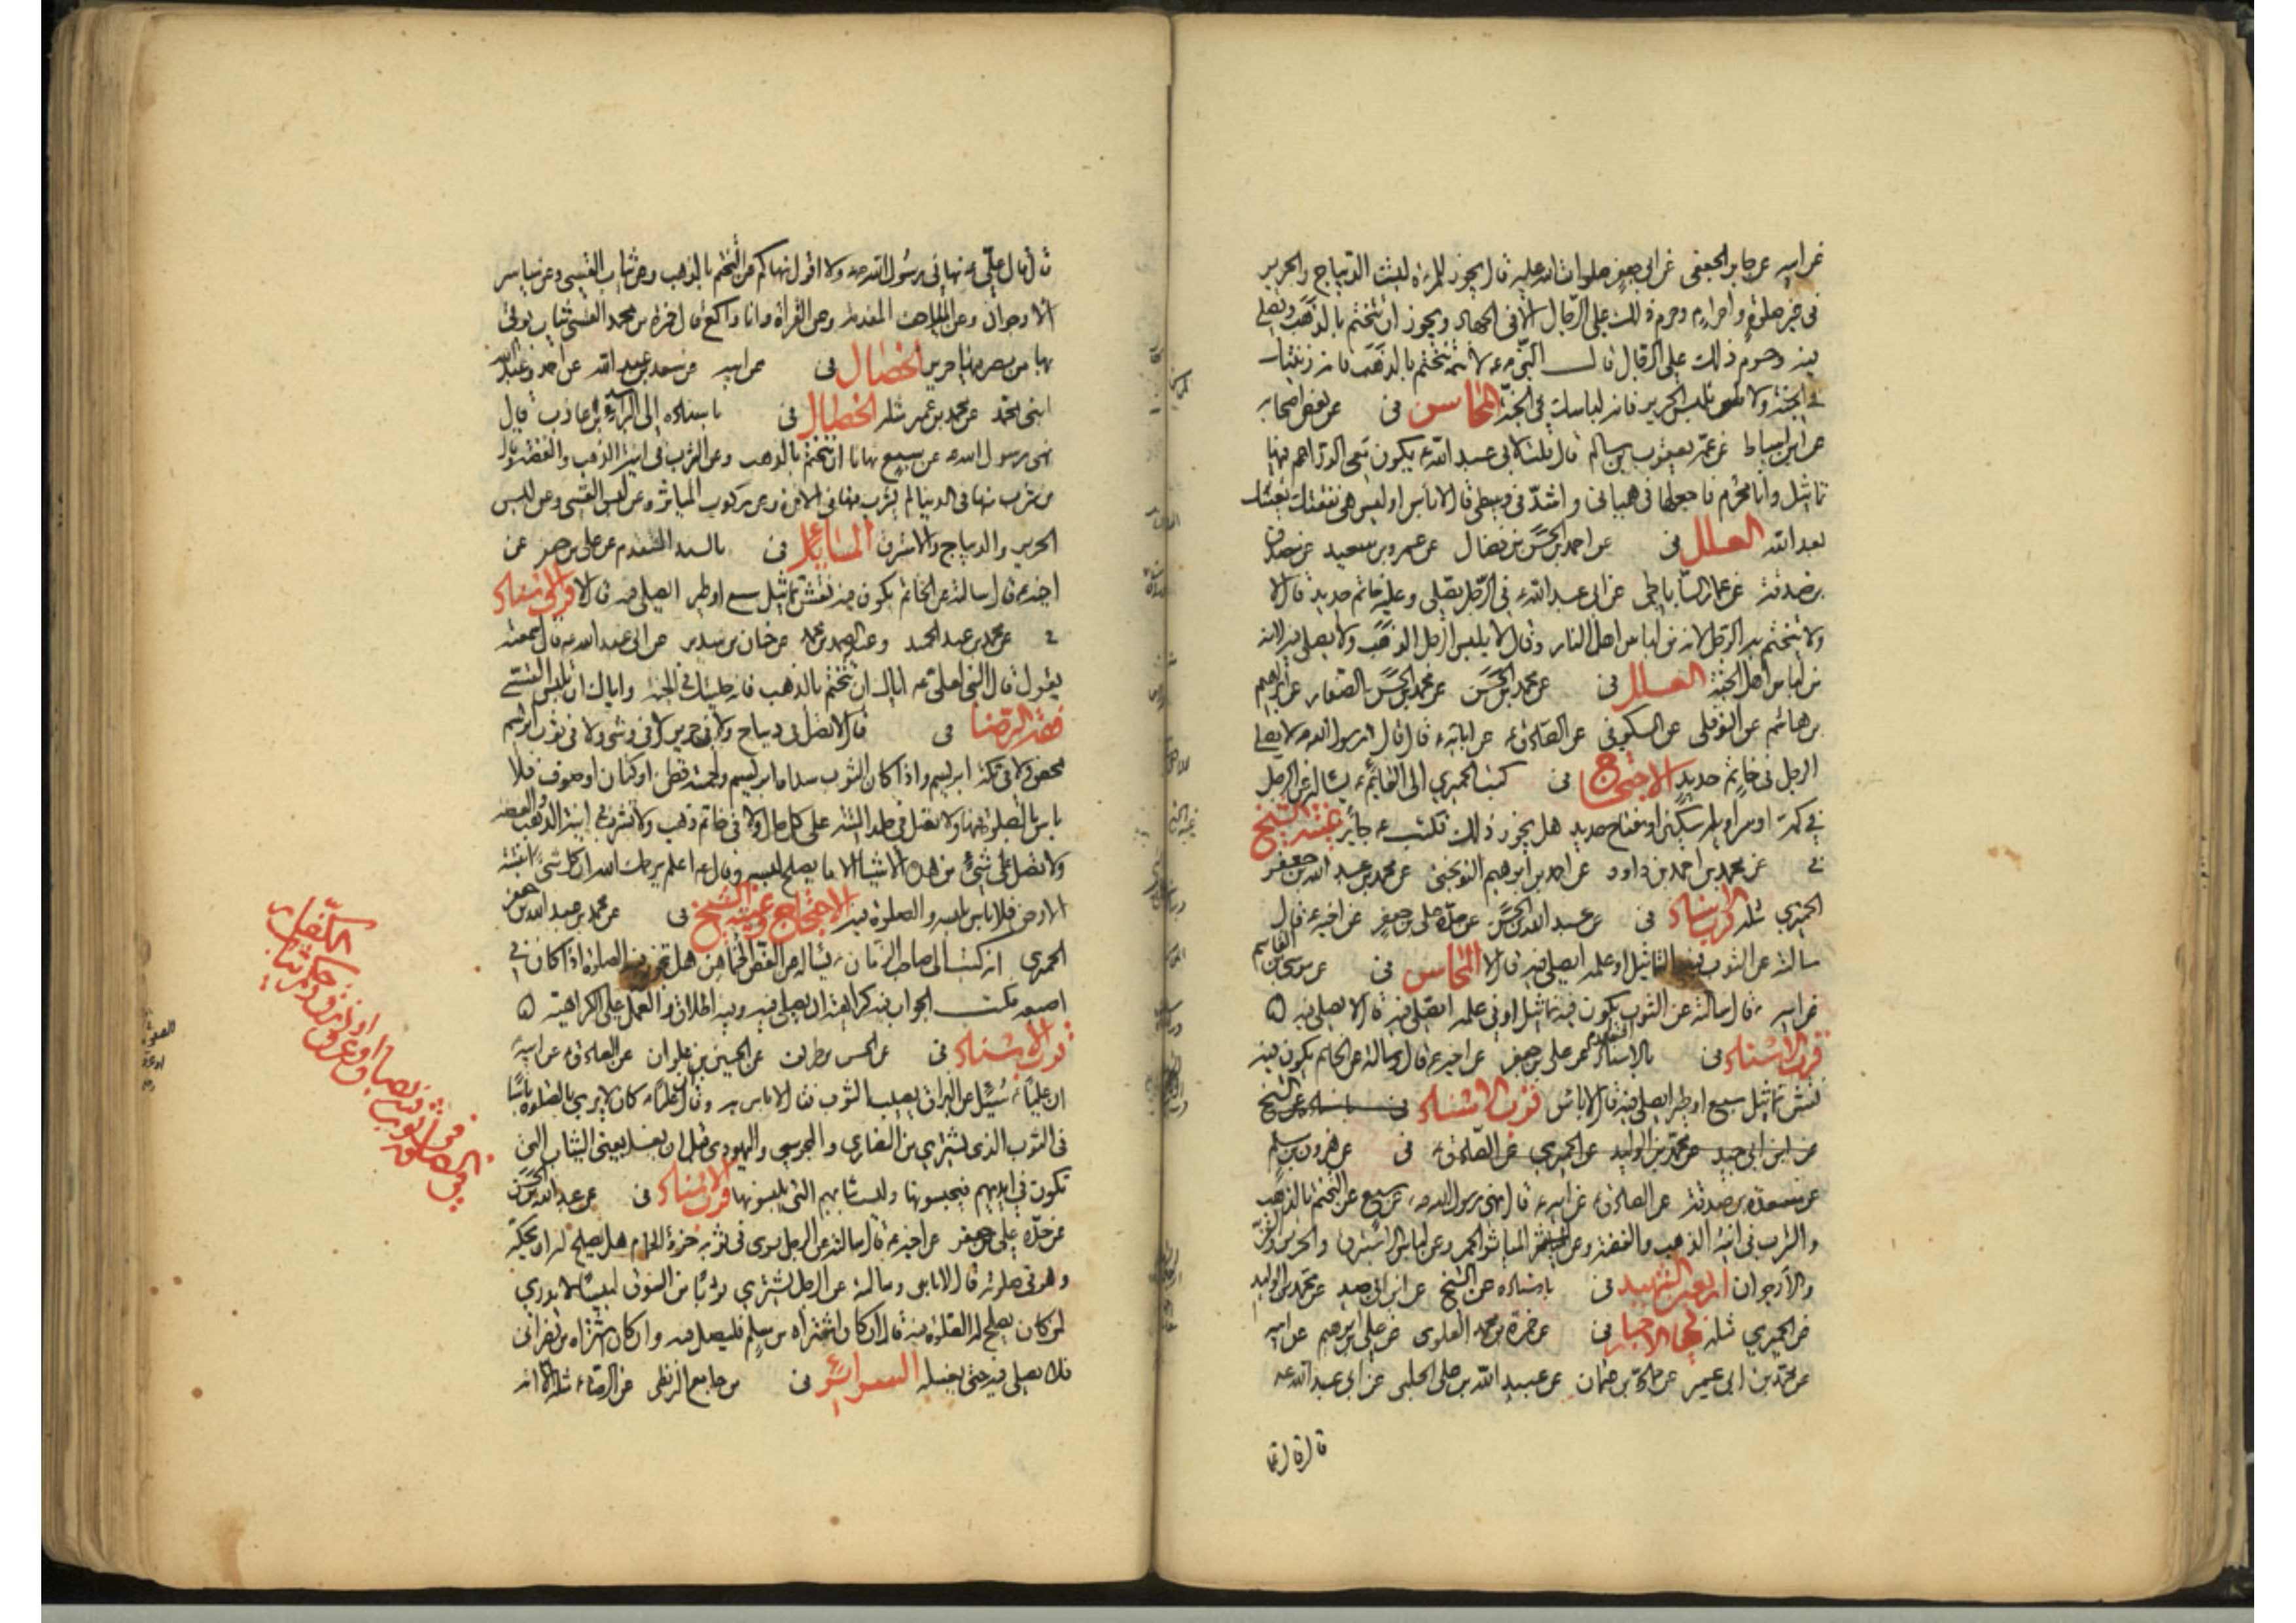 عن ابيه عن جابر الجعفى عن ابى جعفر صلوات الله عليه قال يجوز للمرءة لبس الديباج والحرير
فى غير صلوة واحرام وحرم ذلك على الرجال الا فى الجهاد ويجوز ان تتختم بالذهب وتصلى
فيه وحرم ذلك على الرجال قال النبى ص لا تتختم بالذهب فانه زينتك
فى الجنة ولا تلبس الحرير فانه لباسك فى الجنة المحاسن فى عن بعض اصحابه
عن ابن اسباط عن عمه يعقوب بن سالم قال قلت لابى عبد الله ع يكون معى الدراهم فيها
تماثيل وانا محرم فاجعلها فى هميانى واشده فى وسطى قال لا باس او ليس هى نفقتك تعينك
بعد الله العلل فى عن احمد بن الحسن بن فضال عن عمرو بن سعيد عن مصدق
بن صدقة عن عمار الساباطى عن ابى عبد الله ع فى الرجل يصلى وعليه خاتم حديد قال لا
ولا يتختم به الرجل لانه من لباس اهل النار وقال لا يلبس الرجل الذهب ولا يصلى فيه لانه
من لباس اهل الجنة العلل فى عن محمد بن الحسن عن محمد بن الحسن الصفار عن ابراهيم
بن هاشم عن النوفلى عن السكونى عن الصادق ع عن ابائه ع قال قال رسول الله ص لا يصلى
الرجل فى خاتم حديد الاحتجاج فى كتب الحميرى الى القائم ع يساله عن الرجل
فى كمه او سراويله سكين او مفتاح حديد هل يجوز ذلك فكتب ع جايز غيبة الشيخ
فى عن محمد بن احمد بن داود عن احمد بن ابراهيم النوبختى عن محمد بن عبد الله بن جعفر
الحميرى مثله قرب الاسناد فى عن عبد الله بن الحسن عن جده على بن جعفر عن اخيه ع قال
سالته عن الثوب فيه التماثيل او علمه ايصلى فيه قال لا المحاسن فى عن موسى بن القاسم
عن ابيه ع قال سالته عن الثوب يكون فيه تماثيل او فى علمه ايصلى فيه قال لا يصلى فيه
قرب الاسناد فى بالاسناد المتقدم عن على بن جعفر عن اخيه ع قال وسالته عن الخاتم يكون فيه
نقش تماثيل سبع او طير ايصلى فيه قال لا باس قرب الاسناد فى باسناده عن الشيخ
عن ابن ابى جيد عن محمد بن الوليد عن الحميرى عن الصادق ع فى عن هرون بن مسلم
عن مسعدة بن صدقة عن الصادق ع عن ابيه ع قال نهى رسول الله ص عن سبع عن التختم بالذهب
والشرب فى انية الذهب والفضة وعن المياثر الحمر وعن لباس الاستبرق والحرير والقز
والارجوان اربعين الشهيد فى باسناده عن الشيخ عن ابن ابى جيد عن محمد بن الوليد
عن الحميرى مثله معانى الاخبار فى عن حمزة بن محمد العلوى عن على بن ابرهيم عن ابيه
عن محمد بن ابى عمير عن حماد بن عثمان عن عبيد الله بن على الحلبى عن ابى عبد الله ع
قال قال
قال قال على ع نهانى رسول الله ص ولا اقول نهاكم عن التختم بالذهب وعن ثياب القسى وعن مياثر
الارجوان وعن الملاحف المفدمة وعن القراة وانا راكع قال حمزة بن محمد القسى ثياب يوتى
بها من مصر فيها حرير الخصال فى عن ابيه عن سعد بن عبد الله عن احمد وعبد الله
ابنى محمد عن محمد بن ابى عمير مثله الخصال فى باسناده الى البراء بن عازب قال
نهى رسول الله ص عن سبع نهانا ان نتختم بالذهب وعن الشرب فى انية الذهب والفضة وقال
من شرب فيها فى الدنيا لم يشرب فيها فى الاخرة وعن ركوب المياثر وعن لبس القسى وعن لبس
الحرير والديباج والاستبرق المسائل فى بالسند المتقدم عن على بن جعفر عن
اخيه ع قال سالته عن الخاتم يكون فيه نقش تماثيل سبع او طير ايصلى فيه قال لا قرب الاسناد
فى عن محمد بن عبد الحميد وعبد الصمد بن محمد عن حنان بن سدير عن ابى عبد الله ع قال سمعته
يقول قال النبى لعلى ع اياك ان تتختم بالذهب فانه حليتك فى الجنة واياك ان تلبس القسى
فقه الرضا فى قال لا تصل فى ديباج ولا فى حرير ولا فى وشى ولا فى ثوب ابريسم
محض ولا فى تكة ابريسم واذا كان الثوب سداه ابريسم ولحمته قطن او كتان او صوف فلا
باس بالصلوة فيها ولا تصل فى جلد الميتة على كل حال ولا فى خاتم ذهب ولا تشرب فى انية الذهب والفضة
ولا تصل على شىء من هذه الاشياء الا ما يصلح لبسه وقال ع اعلم يرحمك الله ان كل شىء انبتته
الارض فلا باس بلبسه والصلوة فيه الاحتجاج وغيبة الشيخ فى عن محمد بن عبد الله بن جعفر
الحميرى انه كتب الى صاحب الزمان ع يساله عن الفص الخماهن هل تجوز فيه الصلوة اذا كان فى
اصبعه فكتب الجواب فيه كراهة ان يصلى فيه وفيه اطلاق والعمل على الكراهية
قرب الاسناد فى عن الحسن بن ظريف عن الحسين بن علوان عن الصادق عن ابيه ع
ان عليا ع سئل عن البزاق يصيب الثوب فقال لا باس به وقال ان عليا ع كان لا يرى بالصلوة باسا
فى الثوب الذى يشترى من النصارى والمجوسى واليهودى قبل ان يغسل يعنى الثياب التى
تكون فى ايديهم فيحبسونها وليست ثيابهم التى يلبسونها قرب الاسناد فى عن عبد الله بن الحسن
عن جده على بن جعفر عن اخيه ع قال سالته عن الرجل يرى فى ثوبه خرء الحمام هل يصلح له ان يحكه
وهو فى صلوته قال لا باس وسالته عن الرجل يشترى ثوبا من السوق لبيسا لا يدرى
لمن كان يصلح له الصلوة فيه قال ان كان اشتراه من مسلم فليصل فيه وان كان اشتراه من نصرانى
فلا يصلى فيه حتى يغسله السرائر فى من جامع البزنطى عن الرضا ع مثله الا انه